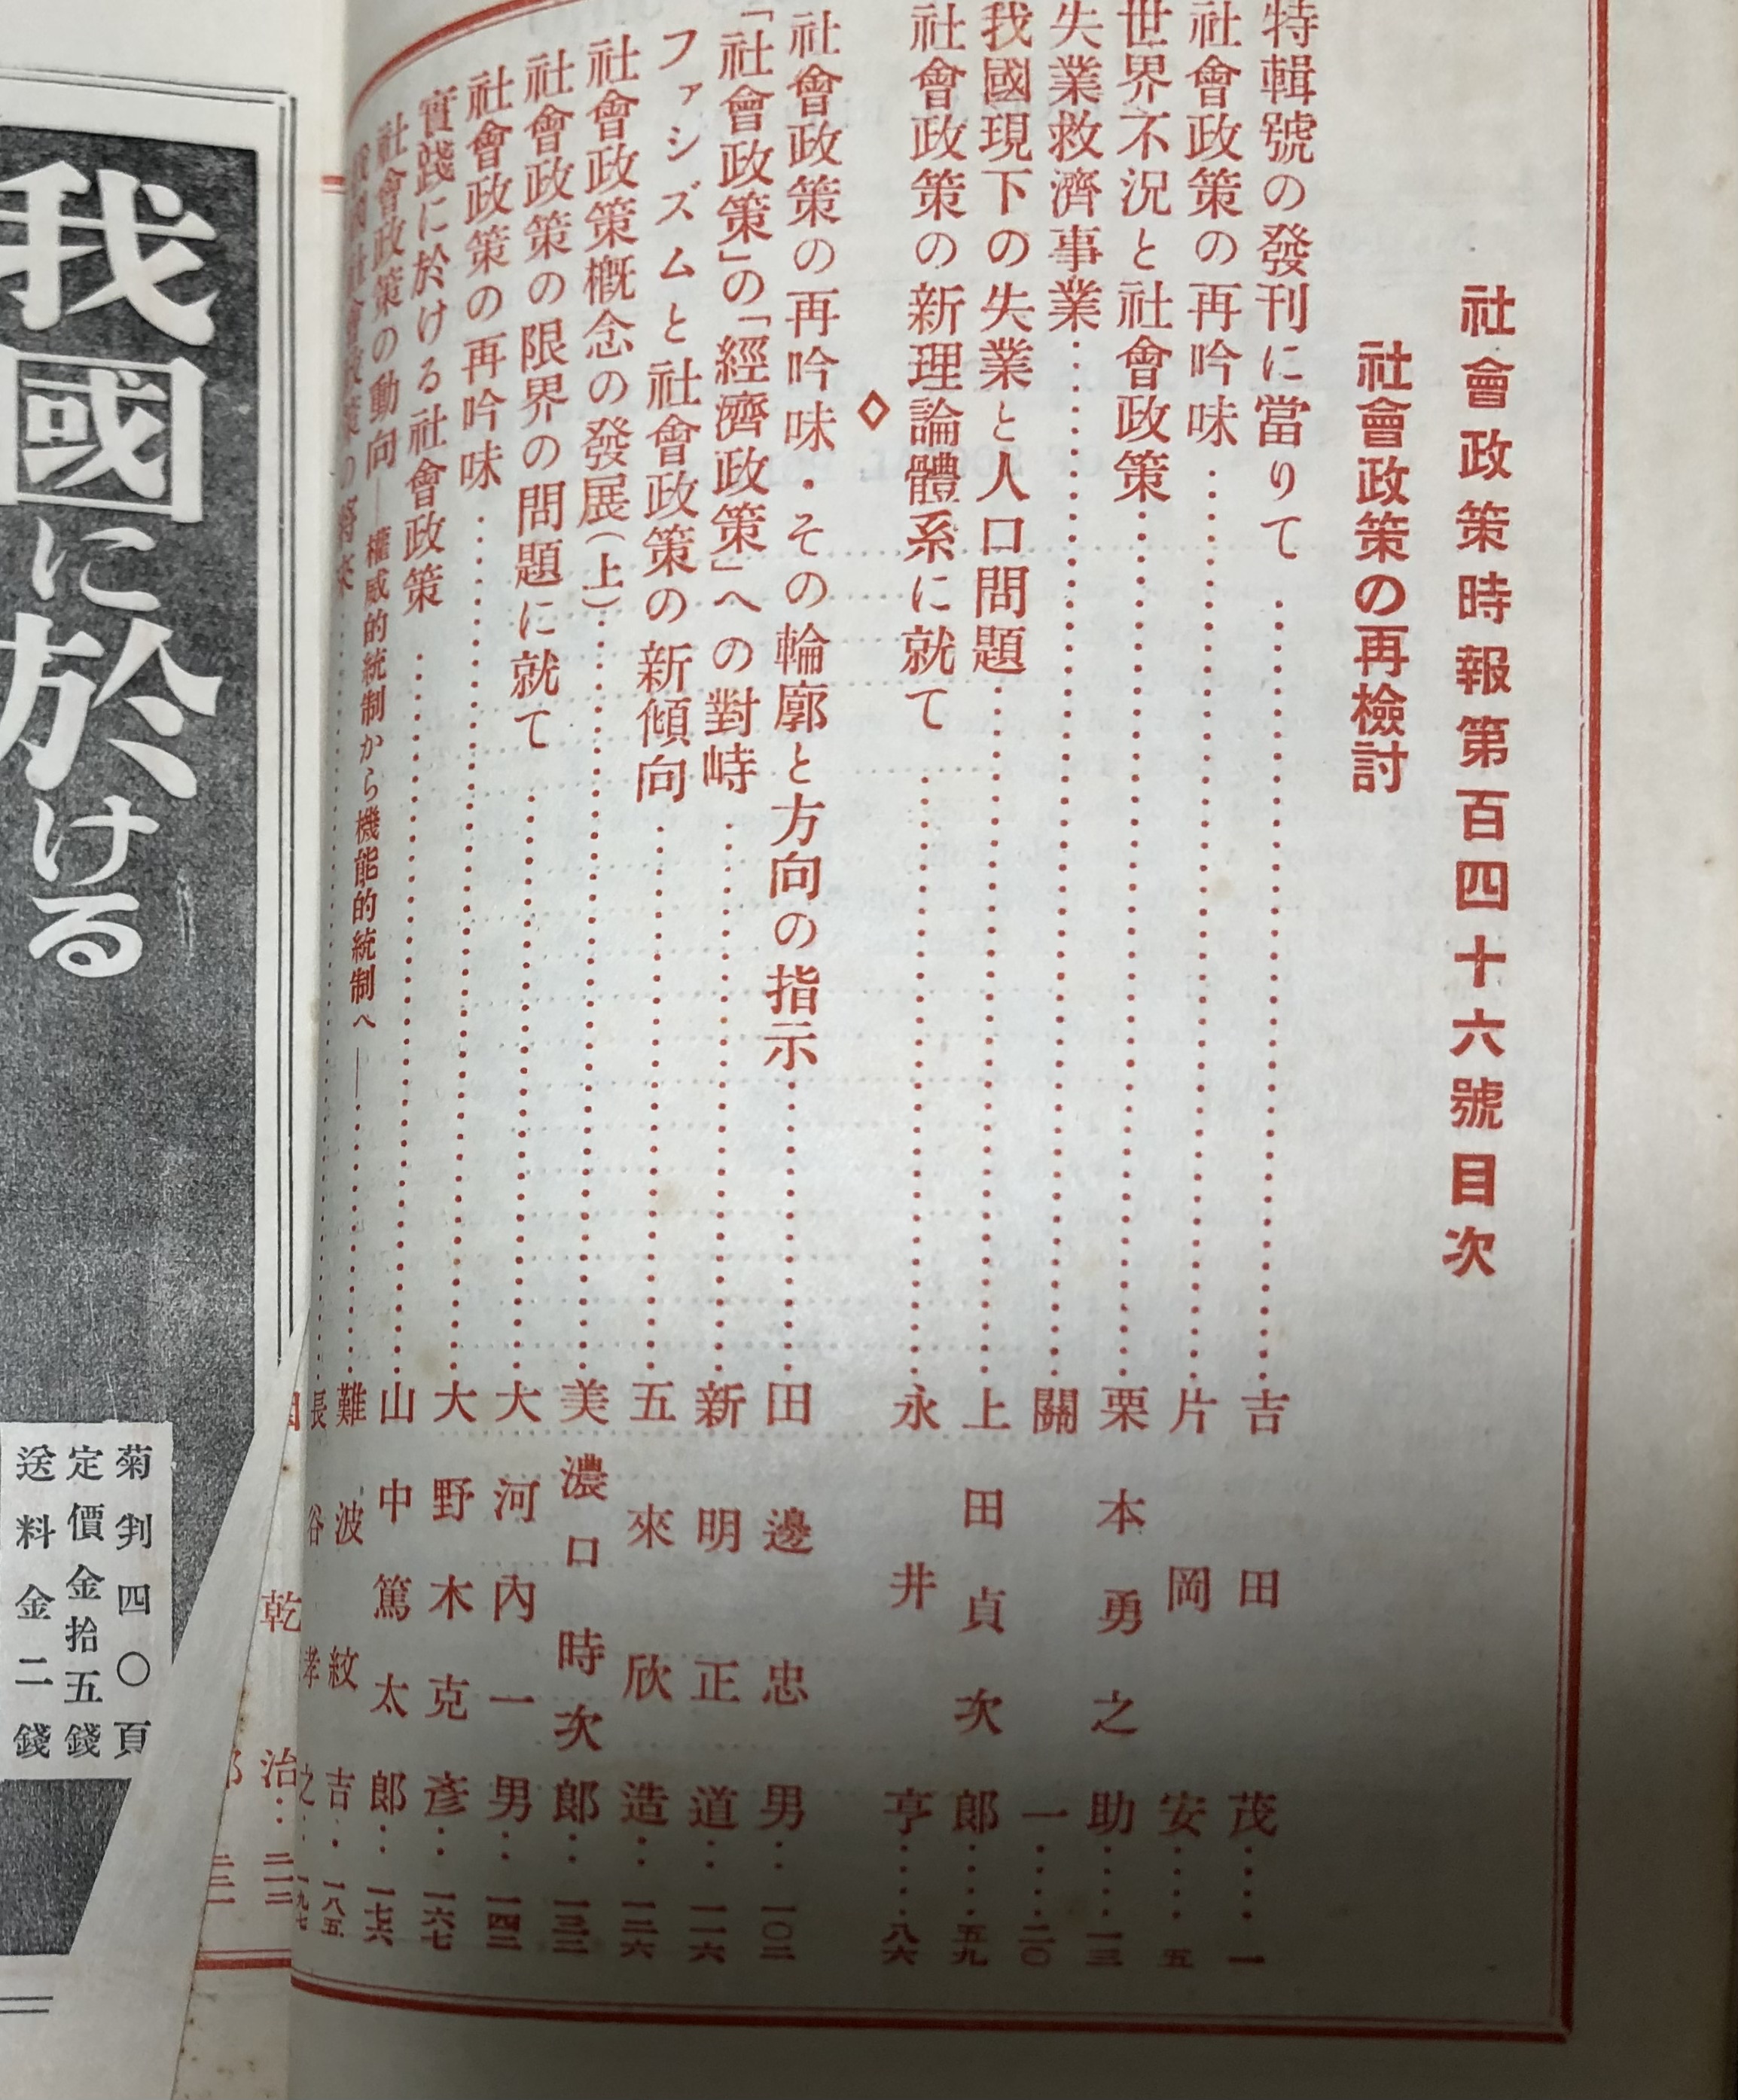 社會政策時報第百四十六號目次
社會政策の再檢討
特輯號の發刊に當りて…………吉田茂……一
社會政策の再吟味…………片岡安……五
世界不況と社會政策…………栗本勇之助……一三
失業救濟事業…………關一……二〇
我國現下の失業と人口問題…………上田貞次郎……五九
社會政策の新理論體系に就て…………永井亨……八六
◇
社會政策の再吟味・その輪廓と方向の指示…………田邊忠男……一〇二
「社會政策」の「經濟政策」への對峙…………新明正道……一一六
ファシズムと社會政策の新傾向…………五來欣造……一二六
社會政策概念の發展(上)…………美濃口時次郎……一三二
社會政策の限界の問題に就て…………大河內一男……一四二
社會政策の再吟味…………大野木克彥……一六七
實踐に於ける社會政策…………山中篤太郎……一七六
社會政策の動向―權威的統制から機能的統制へ―…………難波紋吉……一八五
社會政策の將來…………長谷孝之……一九七
乾治……二一二
郎
我國に於ける
菊判四〇頁
定價金拾五錢
送料金二錢